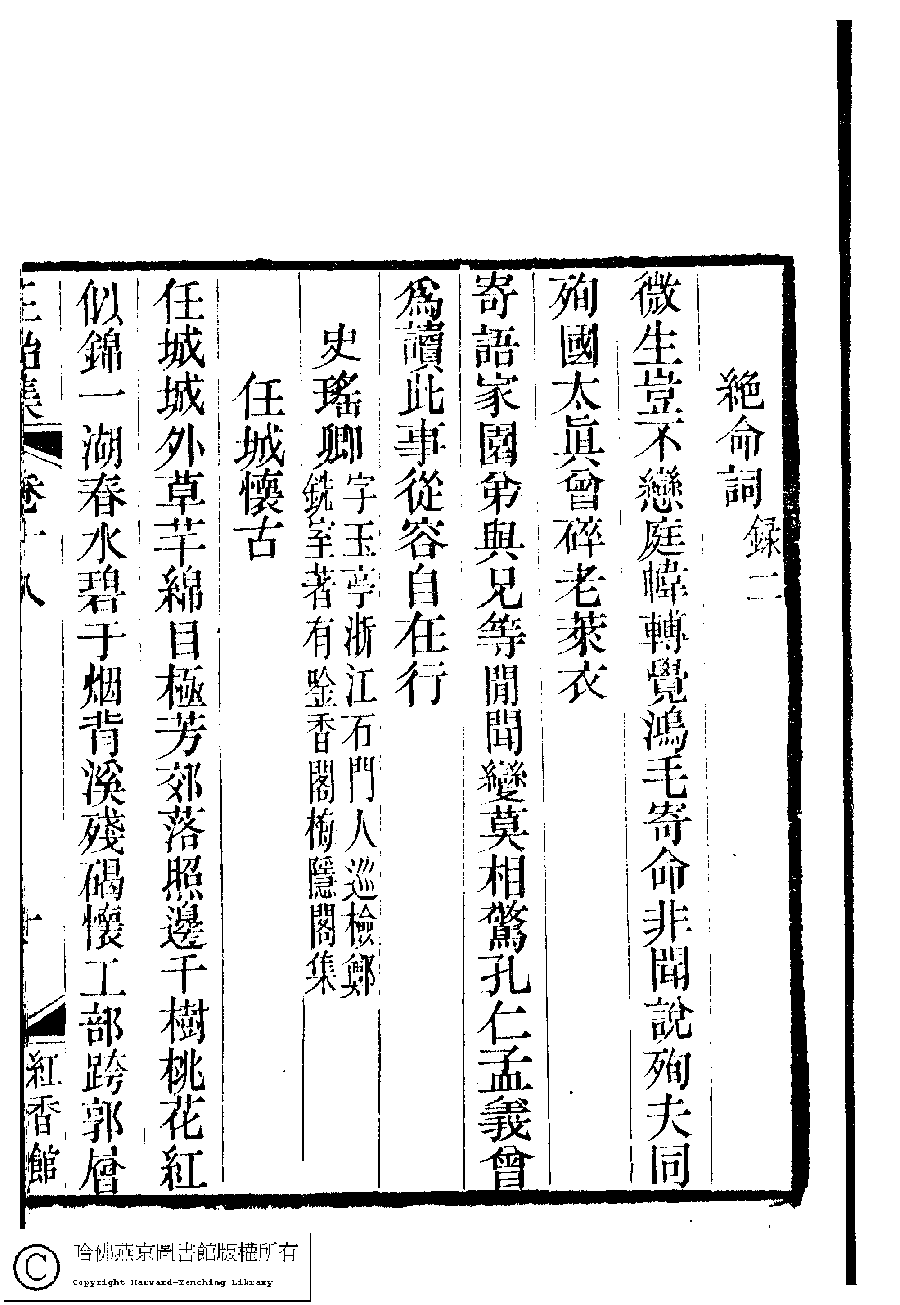 絶命詞録二
微生豈不戀庭幃轉覺鴻毛寄命非聞說殉夫同
殉國太眞曾碎老萊衣
寄語家園弟與兄等閒聞變莫相驚孔仁孟義曾
爲讀此事從容自在行
史瑤卿字玉亭浙江石門人巡檢鄭
銑室著有唫香閣梅隱閣集
任城懷古
任城城外草芊綿目極芳郊落照邊千樹桃花紅
似錦一湖春水碧于烟背溪殘碣懷工部跨郭層
正始集 卷十八 十 紅香館
哈佛燕京圖書館版權所有
Copyright Harvard-Yenching Library